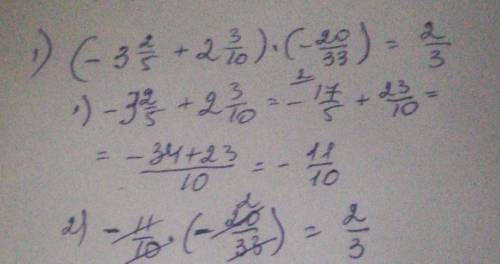 1) (- 3 2/5 + 2 3/10) · (- 20/33) = 2/3
1) - 3 2/5 + 2 3/10 = - 17/5 + 23/10 =
= (-34+23)/10 = - 11/10
2) - 11/10 · (- 20/33) = 2/3